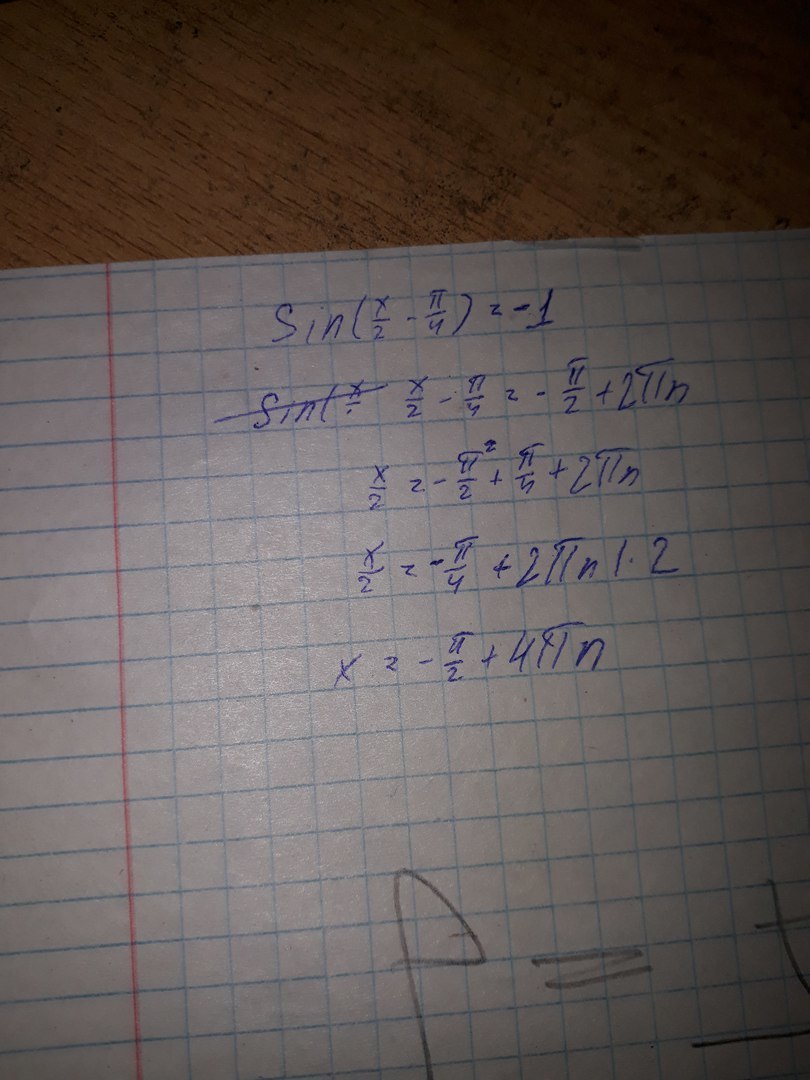 Sin(x/2 - π/4) = -1
Sin(x/ x/2 - π/4 = - π/2 + 2πn
x/2 = - π/2² + π/4 + 2πn
x/2 = - π/4 + 2πn |·2
x = - π/2 + 4πn
P =